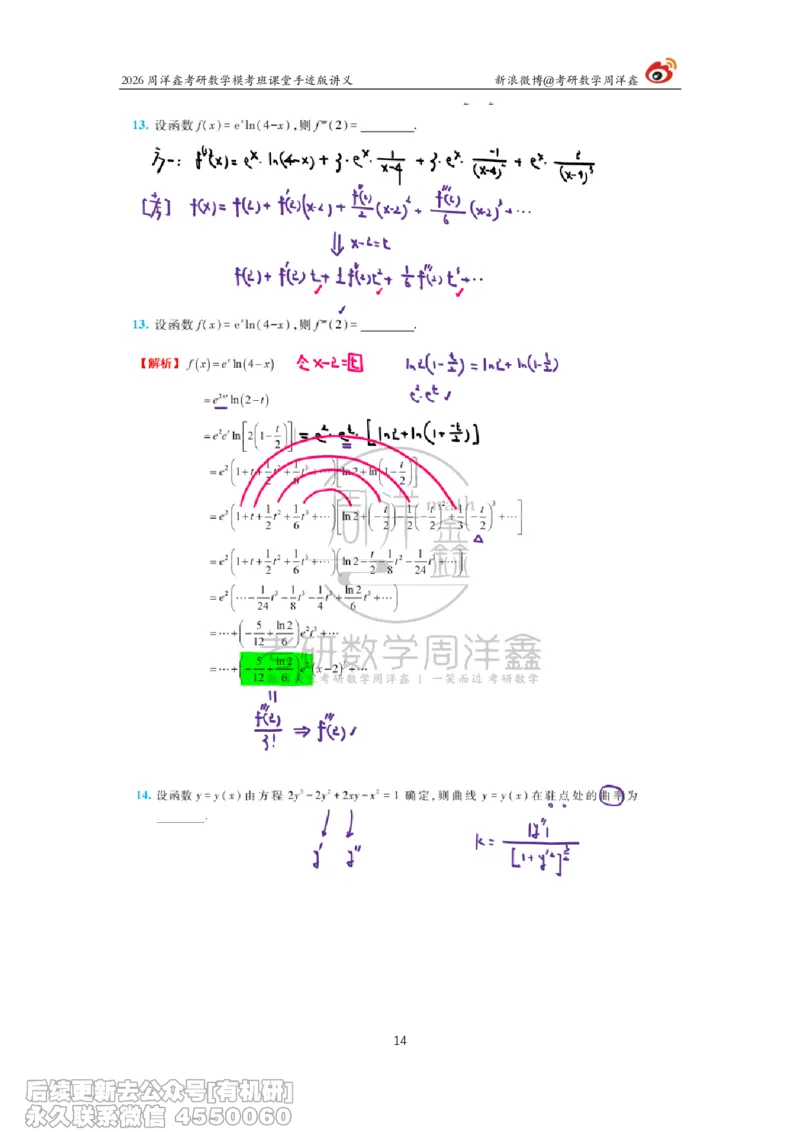 2026 周洋鑫考研数学模考班课堂手迹版讲义 新浪微博@考研数学周洋鑫
13. 设函数 f(x) = e^x ln(4-x), 则 f'''(2) = ________.
方一: f'''(x) = e^x · ln(4-x) + 3 · e^x · 1/(x-4) + 3 · e^x · -1/(x-4)^2 + e^x · 2/(x-4)^3
f(x) = f(2) + f'(2)(x-2) + f''(2)/2 (x-2)^2 + f'''(2)/6 (x-2)^3 + ···
⇓ x-2=t
f(2) + f'(2) t + 1/2 f''(2) t^2 + 1/6 f'''(2) t^3 + ···
13. 设函数 f(x) = e^x ln(4-x), 则 f'''(2) = ________.
【解析】 f(x) = e^x ln(4-x) 令 x-2=t ln2(1-t/2) = ln2 + ln(1-t/2)
= e^{2+t} ln(2-t) e^2·e^t ✓
= e^2 e^t ln[2(1-t/2)] = e^2 · e^t · [ln2 + ln(1+ -t/2)]
= e^2 (1+t+1/2 t^2+1/6 t^3+···)[ln2+ln(1-t/2)]
= e^2 (1+t+1/2 t^2+1/6 t^3+···)[ln2+(-t/2)-1/2(-t/2)^2+1/3(-t/2)^3+···]
= e^2 (1+t+1/2 t^2+1/6 t^3+···)(ln2-t/2-1/8 t^2-1/24 t^3+···)
= e^2 (···-1/24 t^3-1/8 t^3-1/4 t^3+ln2/6 t^3+···)
= ···+(-5/12+ln2/6)e^2 t^3+···
= ···+(-5/12+ln2/6)e^2 (x-2)^3+···
周洋鑫
math
考研数学周洋鑫
考研数学周洋鑫 | 一笑而过 考研数学
f'''(2)/3! ⇒ f'''(2) ✓
14. 设函数 y=y(x) 由方程 2y^3-2y^2+2xy-x^2=1 确定, 则曲线 y=y(x) 在驻点处的曲率为
________.
y' y'' k = |y''|/[1+y'^2]^{3/2}
14
后续更新去公众号[有机研]
永久联系微信 4550060